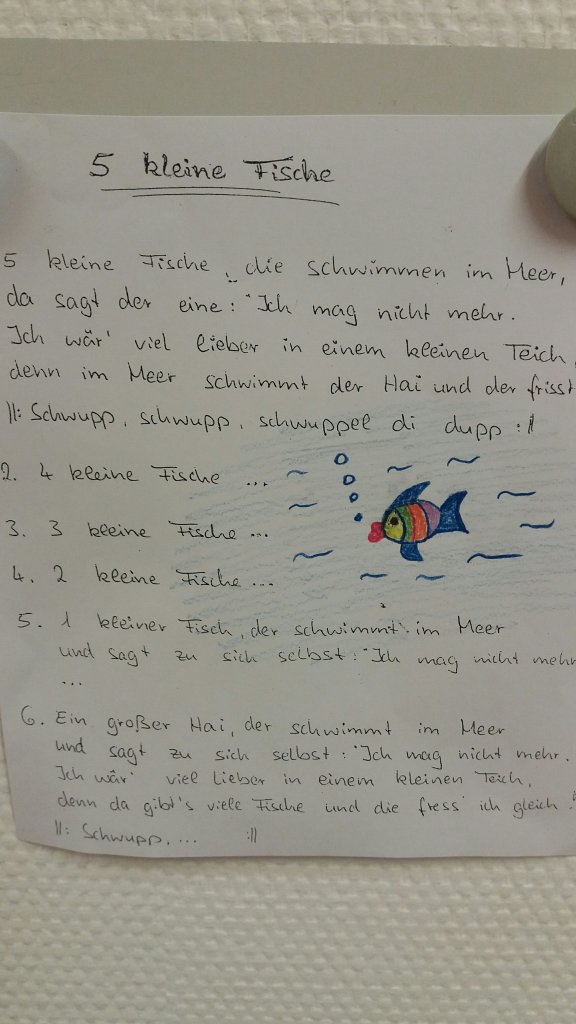 5 kleine Fische
5 kleine Fische, die schwimmen im Meer,
da sagt der eine: "Ich mag nicht mehr.
Ich wär' viel lieber in einem kleinen Teich,
denn im Meer schwimmt der Hai und der frisst
||: Schwupp, schwupp, schwuppel di dupp :||
2. 4 kleine Fische ...
3. 3 kleine Fische ...
4. 2 kleine Fische ...
5. 1 kleiner Fisch, der schwimmt im Meer
und sagt zu sich selbst: "Ich mag nicht mehr
...
6. Ein großer Hai, der schwimmt im Meer
und sagt zu sich selbst: "Ich mag nicht mehr.
Ich wär' viel lieber in einem kleinen Teich,
denn da gibt's viele Fische und die fress' ich gleich!"
||: Schwupp, ... :||